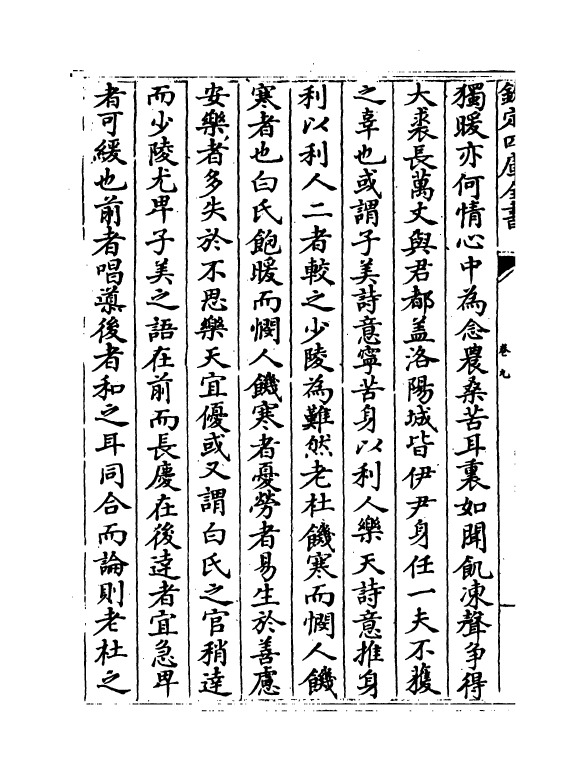 欽定四庫全書
卷九
獨暖亦何情心中為念農桑苦耳裏如聞飢凍聲争得
大裘長萬丈與君都盖洛陽城皆伊尹身任一夫不獲
之辜也或謂子美詩意寧苦身以利人樂天詩意推身
利以利人二者較之少陵為難然老杜饑寒而憫人饑
寒者也白氏飽暖而憫人饑寒者憂勞者易生於善慮
安樂者多失於不思樂天宜優或又謂白氏之官稍達
而少陵尤卑子美之語在前而長慶在後達者宜急卑
者可緩也前者唱導後者和之耳同合而論則老杜之